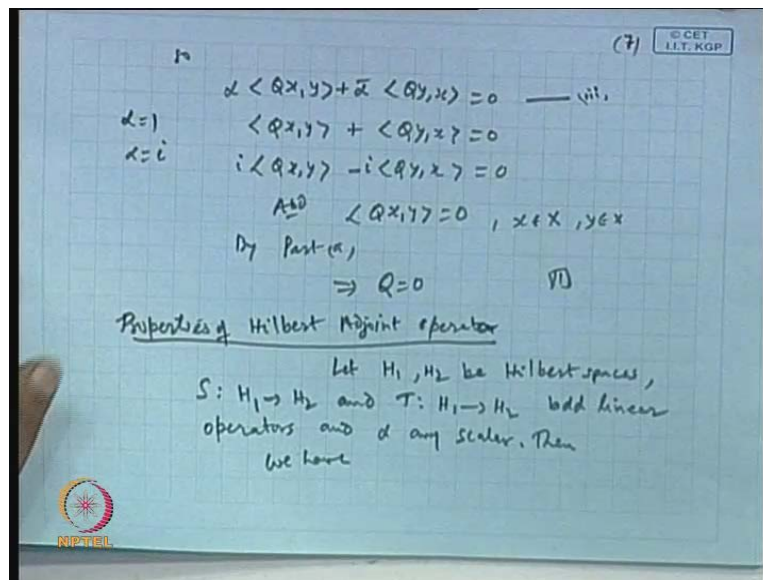 (7)
© CET
I.I.T. KGP
so
α <Qx,y> + ᾱ <Qy,x> = 0 —— (iii,
α=1 <Qx,y> + <Qy,x> = 0
α=i i<Qx,y> - i<Qy,x> = 0
Add <Qx,y> = 0 , x∈X , y∈X
By Part (a,
⇒ Q=0
Properties of Hilbert Adjoint operator
Let H₁, H₂ be Hilbert spaces,
S: H₁→H₂ and T: H₁→H₂ bdd linear
operators and α any scalar. Then
we have
NPTEL